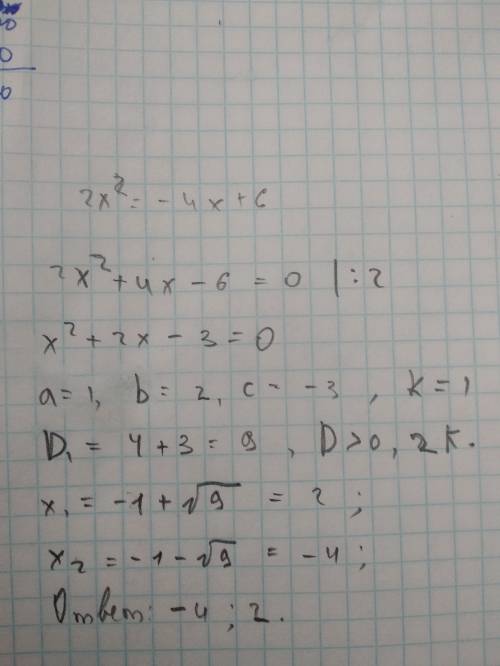 0
0
0
2x² = -4x+6
2x² + 4x - 6 = 0 | : 2
x² + 2x - 3 = 0
a = 1, b = 2, c = -3, k = 1
D₁ = 4 + 3 = 9, D > 0, 2 к.
x₁ = -1 + √9 = 2;
x₂ = -1 - √9 = -4;
Ответ: -4; 2.